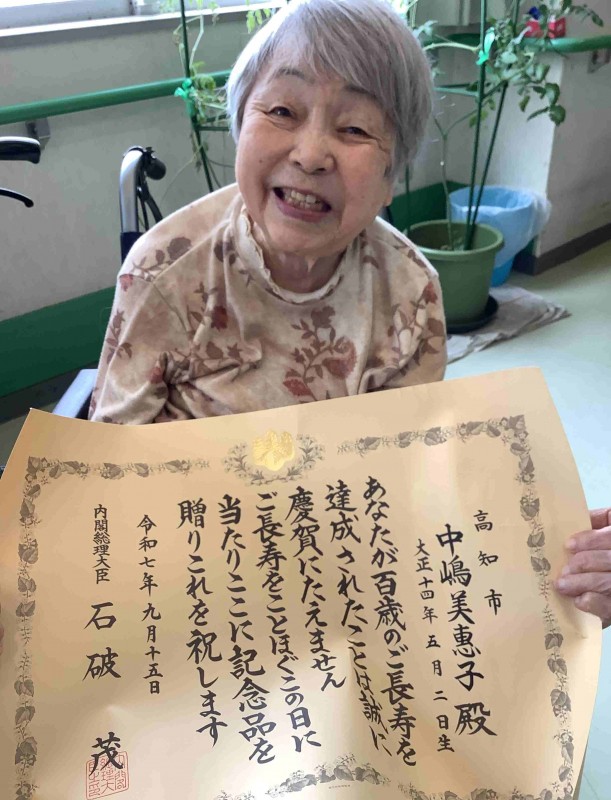 高知市
中嶋美惠子 殿
大正十四年 五月 二日生
あなたが百歳のご長寿を
達成されたことは誠に
慶賀にたえません
ご長寿をことほぐこの日に
当たりここに記念品を
贈りこれを祝します
令和七年 九月十五日
内閣総理大臣 石破 茂